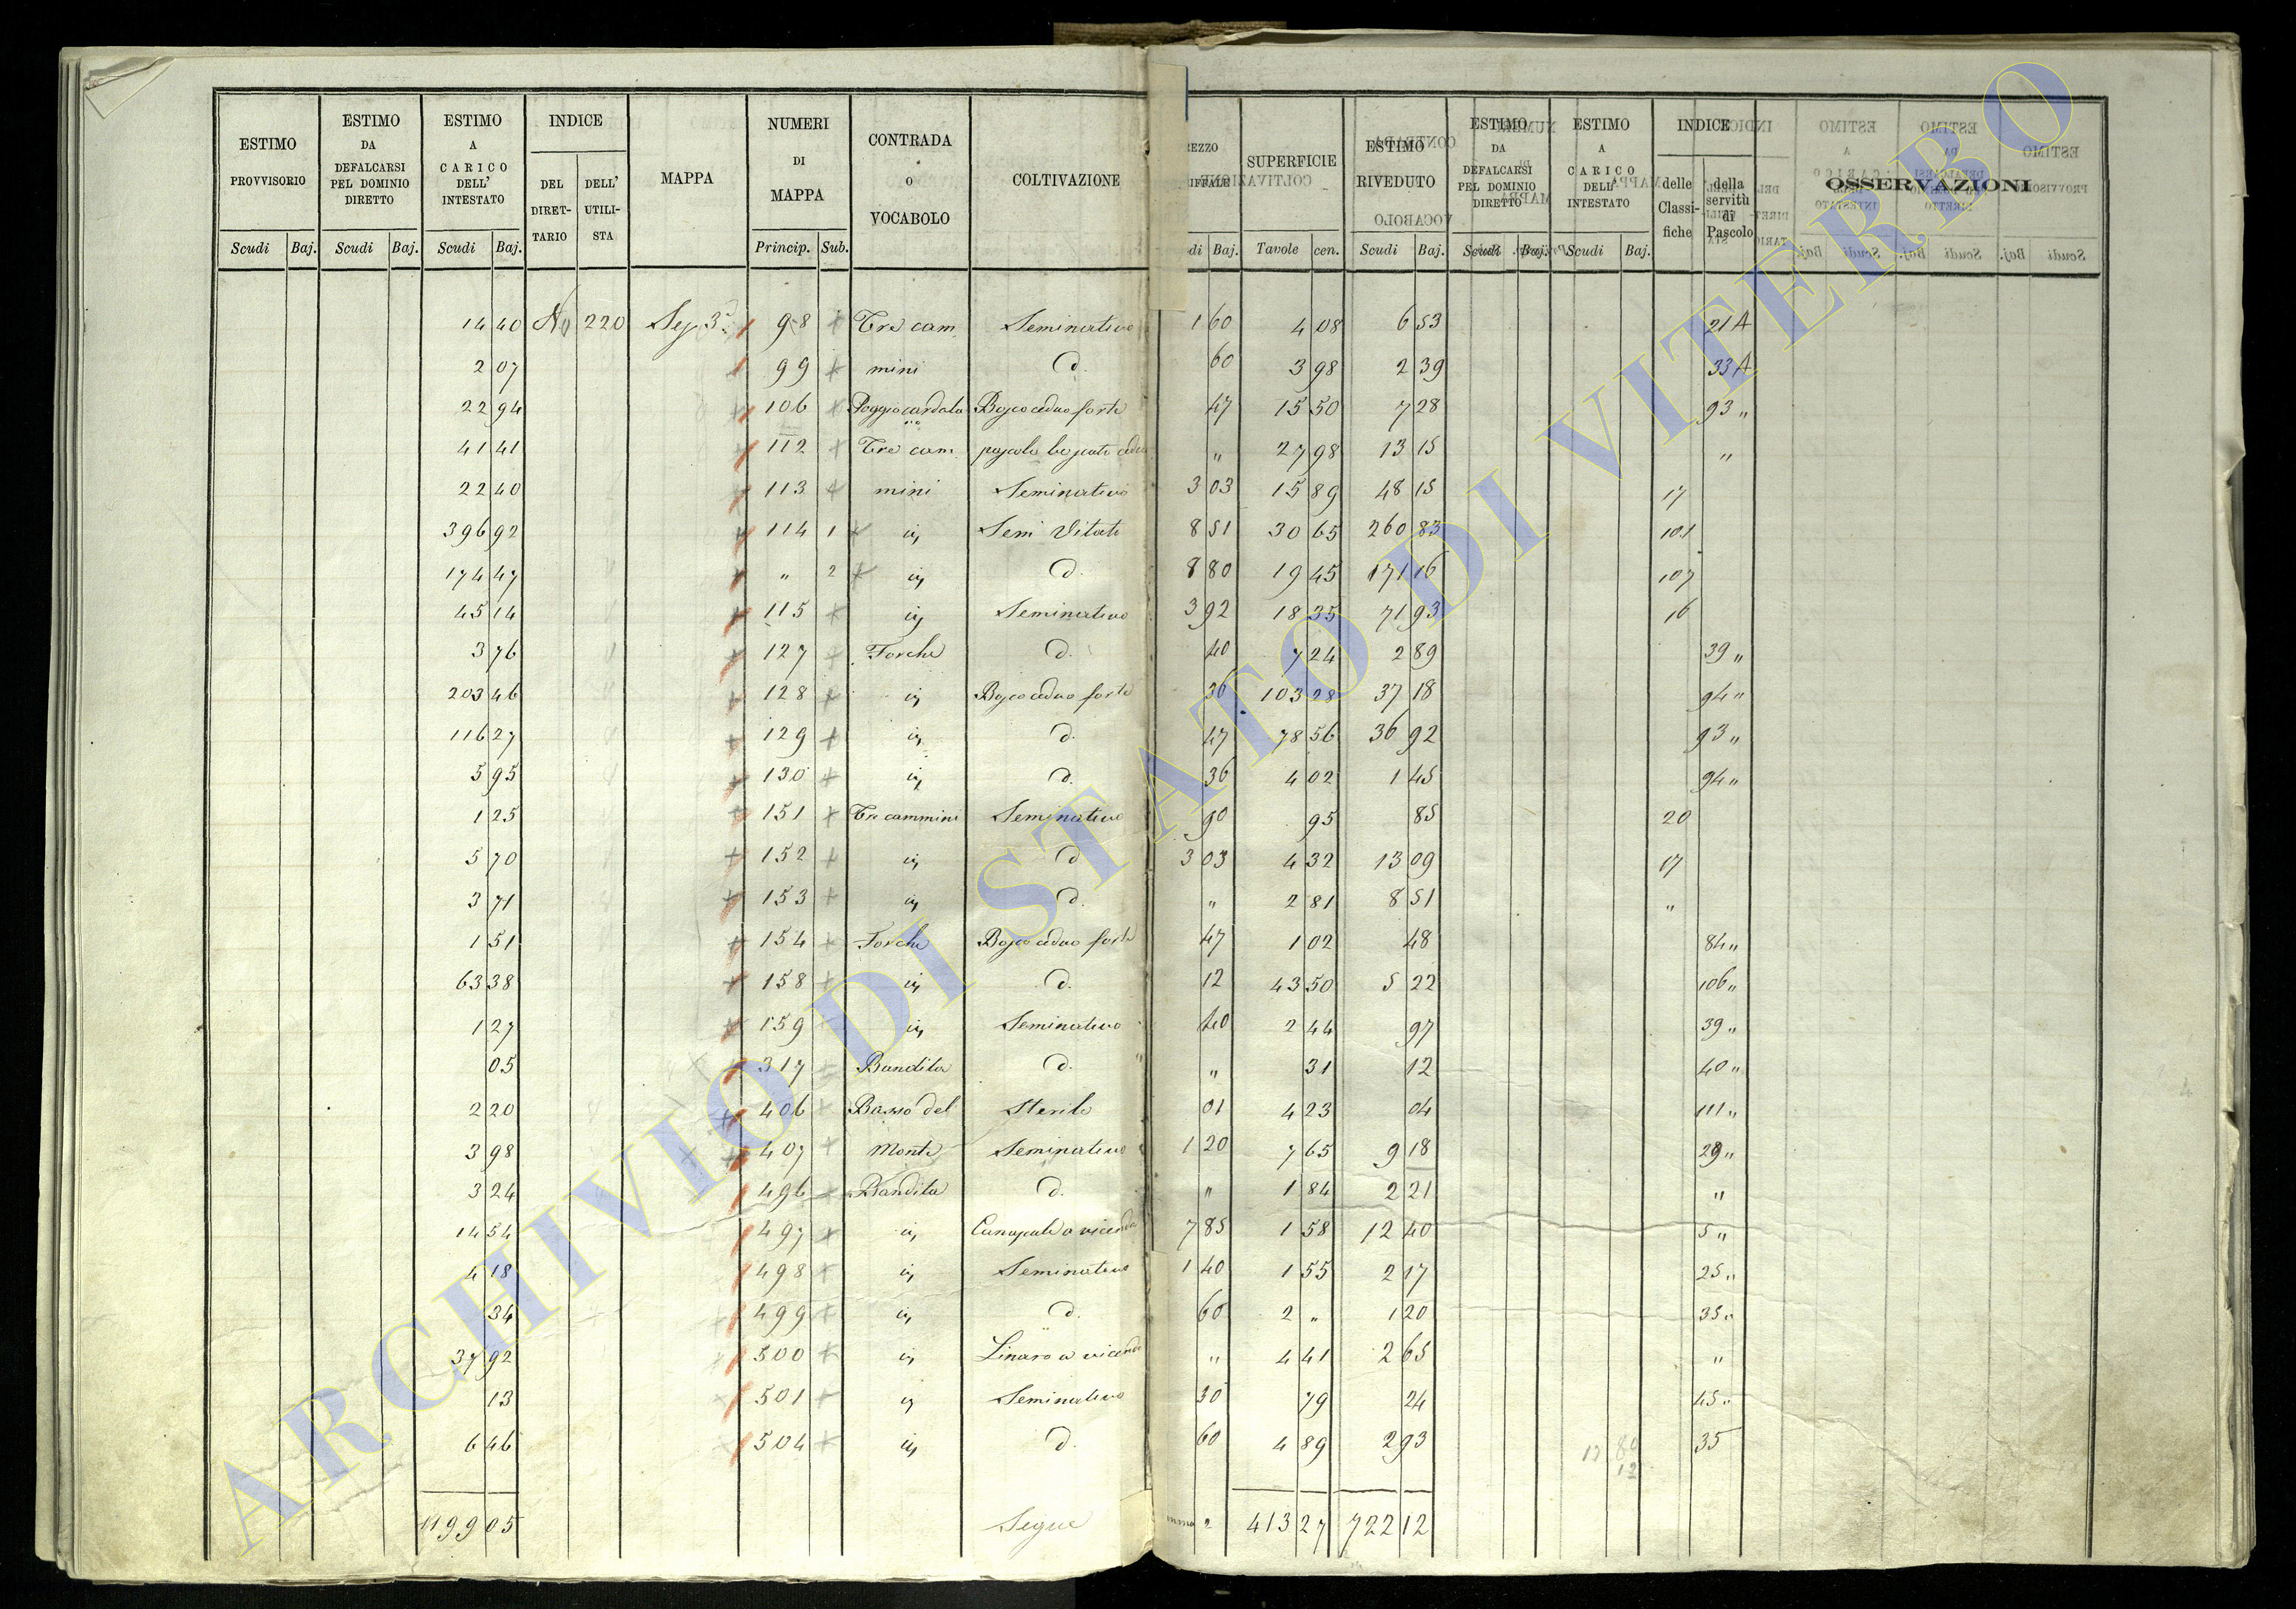 ESTIMO PROVVISORIO | ESTIMO DA DEFALCARSI PEL DOMINIO DIRETTO | ESTIMO A CARICO DELL' INTESTATO | INDICE DEL DIRETTARIO | DELL' UTILISTA | MAPPA | NUMERI DI MAPPA | CONTRADA O VOCABOLO | COLTIVAZIONE | SUPERFICIE | ESTIMO RIVEDUTO | ESTIMO DA DEFALCARSI PEL DOMINIO DIRETTO | ESTIMO A CARICO DELL' INTESTATO | INDICE delle Classifiche | della servitù di Pascolo | OSSERVAZIONI
Scudi Baj. | Scudi Baj. | Scudi Baj. | Princip. Sub. | di Baj. | Tavole cen. | Scudi Baj. | Scudi Baj. | Scudi Baj.
14 40 | No 220 | Sez 3ª | 98 | Tre cam | Seminativo | 1 60 | 4 08 | 6 53 | 21 A
2 07 | 99 | mini | d. | 60 | 3 98 | 2 39 | 33 A
22 94 | 106 | Poggio cardala | Bosco ceduo forte | 47 | 15 50 | 7 28 | 93 "
41 41 | 112 | Tre cam. | pascolo boscato | " | 27 98 | 13 15 | "
22 40 | 113 | mini | Seminativo | 3 03 | 15 89 | 48 15 | 17
396 92 | 114 1 | Sem Vitato | 8 51 | 30 65 | 260 83 | 101
174 47 | " 2 | d. | 8 80 | 19 45 | 171 16 | 107
45 14 | 115 | Seminativo | 3 92 | 18 35 | 71 93 | 16
3 76 | 127 | Forche | d. | 40 | 7 24 | 2 89 | 39 "
203 46 | 128 | Bosco ceduo forte | 36 | 103 28 | 37 18 | 94 "
116 27 | 129 | d. | 47 | 78 56 | 36 92 | 93 "
5 95 | 130 | d. | 36 | 4 02 | 1 45 | 94 "
1 25 | 151 | Tre cammini | Seminativo | 90 | 95 | 85 | 20
5 70 | 152 | d | 3 03 | 4 32 | 13 09 | 17
3 71 | 153 | d. | " | 2 81 | 8 51 | "
1 51 | 154 | Forche | Bosco ceduo forte | 47 | 1 02 | 48 | 84 "
63 38 | 158 | d. | 12 | 43 50 | 5 22 | 106 "
1 27 | 159 | Seminativo | 40 | 2 44 | 97 | 39 "
05 | 317 | Bandita | d. | " | 31 | 12 | 40 "
2 20 | 406 | Basso del | Sterile | 01 | 4 23 | 04 | 111 "
3 98 | 407 | Monte | Seminativo | 1 20 | 7 65 | 9 18 | 29 "
3 24 | 496 | Bandita | d. | " | 1 84 | 2 21 | "
14 54 | 497 | Canapule a vicenda | 7 85 | 1 58 | 12 40 | 5 "
4 18 | 498 | Seminativo | 1 40 | 1 55 | 2 17 | 25 "
34 | 499 | d. | 60 | 2 " | 1 20 | 35 "
37 92 | 500 | Linaro a vicenda | " | 4 41 | 2 65 | "
13 | 501 | Seminativo | 30 | 79 | 24 | 45 "
6 46 | 504 | d. | 60 | 4 89 | 2 93 | 35
1199 05 | Segue | 413 27 | 722 12
ARCHIVIO DI STATO DI VITERBO